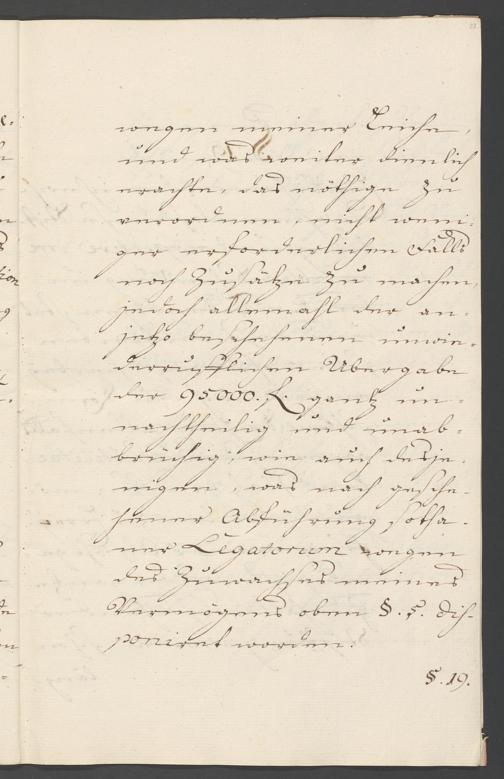 wegen meiner Leiche,
und was weiter dienlich
erachte, das nöthige zu
verordnen, nicht weni-
ger erforderlichen Falls
noch Zusätze zu machen,
jedoch allemahl der an-
jetzo beschehenen unwie-
derrufflichen Übergabe
der 95000. f. gantz un-
nachtheilig und unab-
brüchig, wie auch desje-
nigen, was nach gesche-
hener Abführung sotha-
ner Legatorum wegen
des Zuwachses meines
Vermögens oben §. 5. dis-
poniret worden.
§. 19.